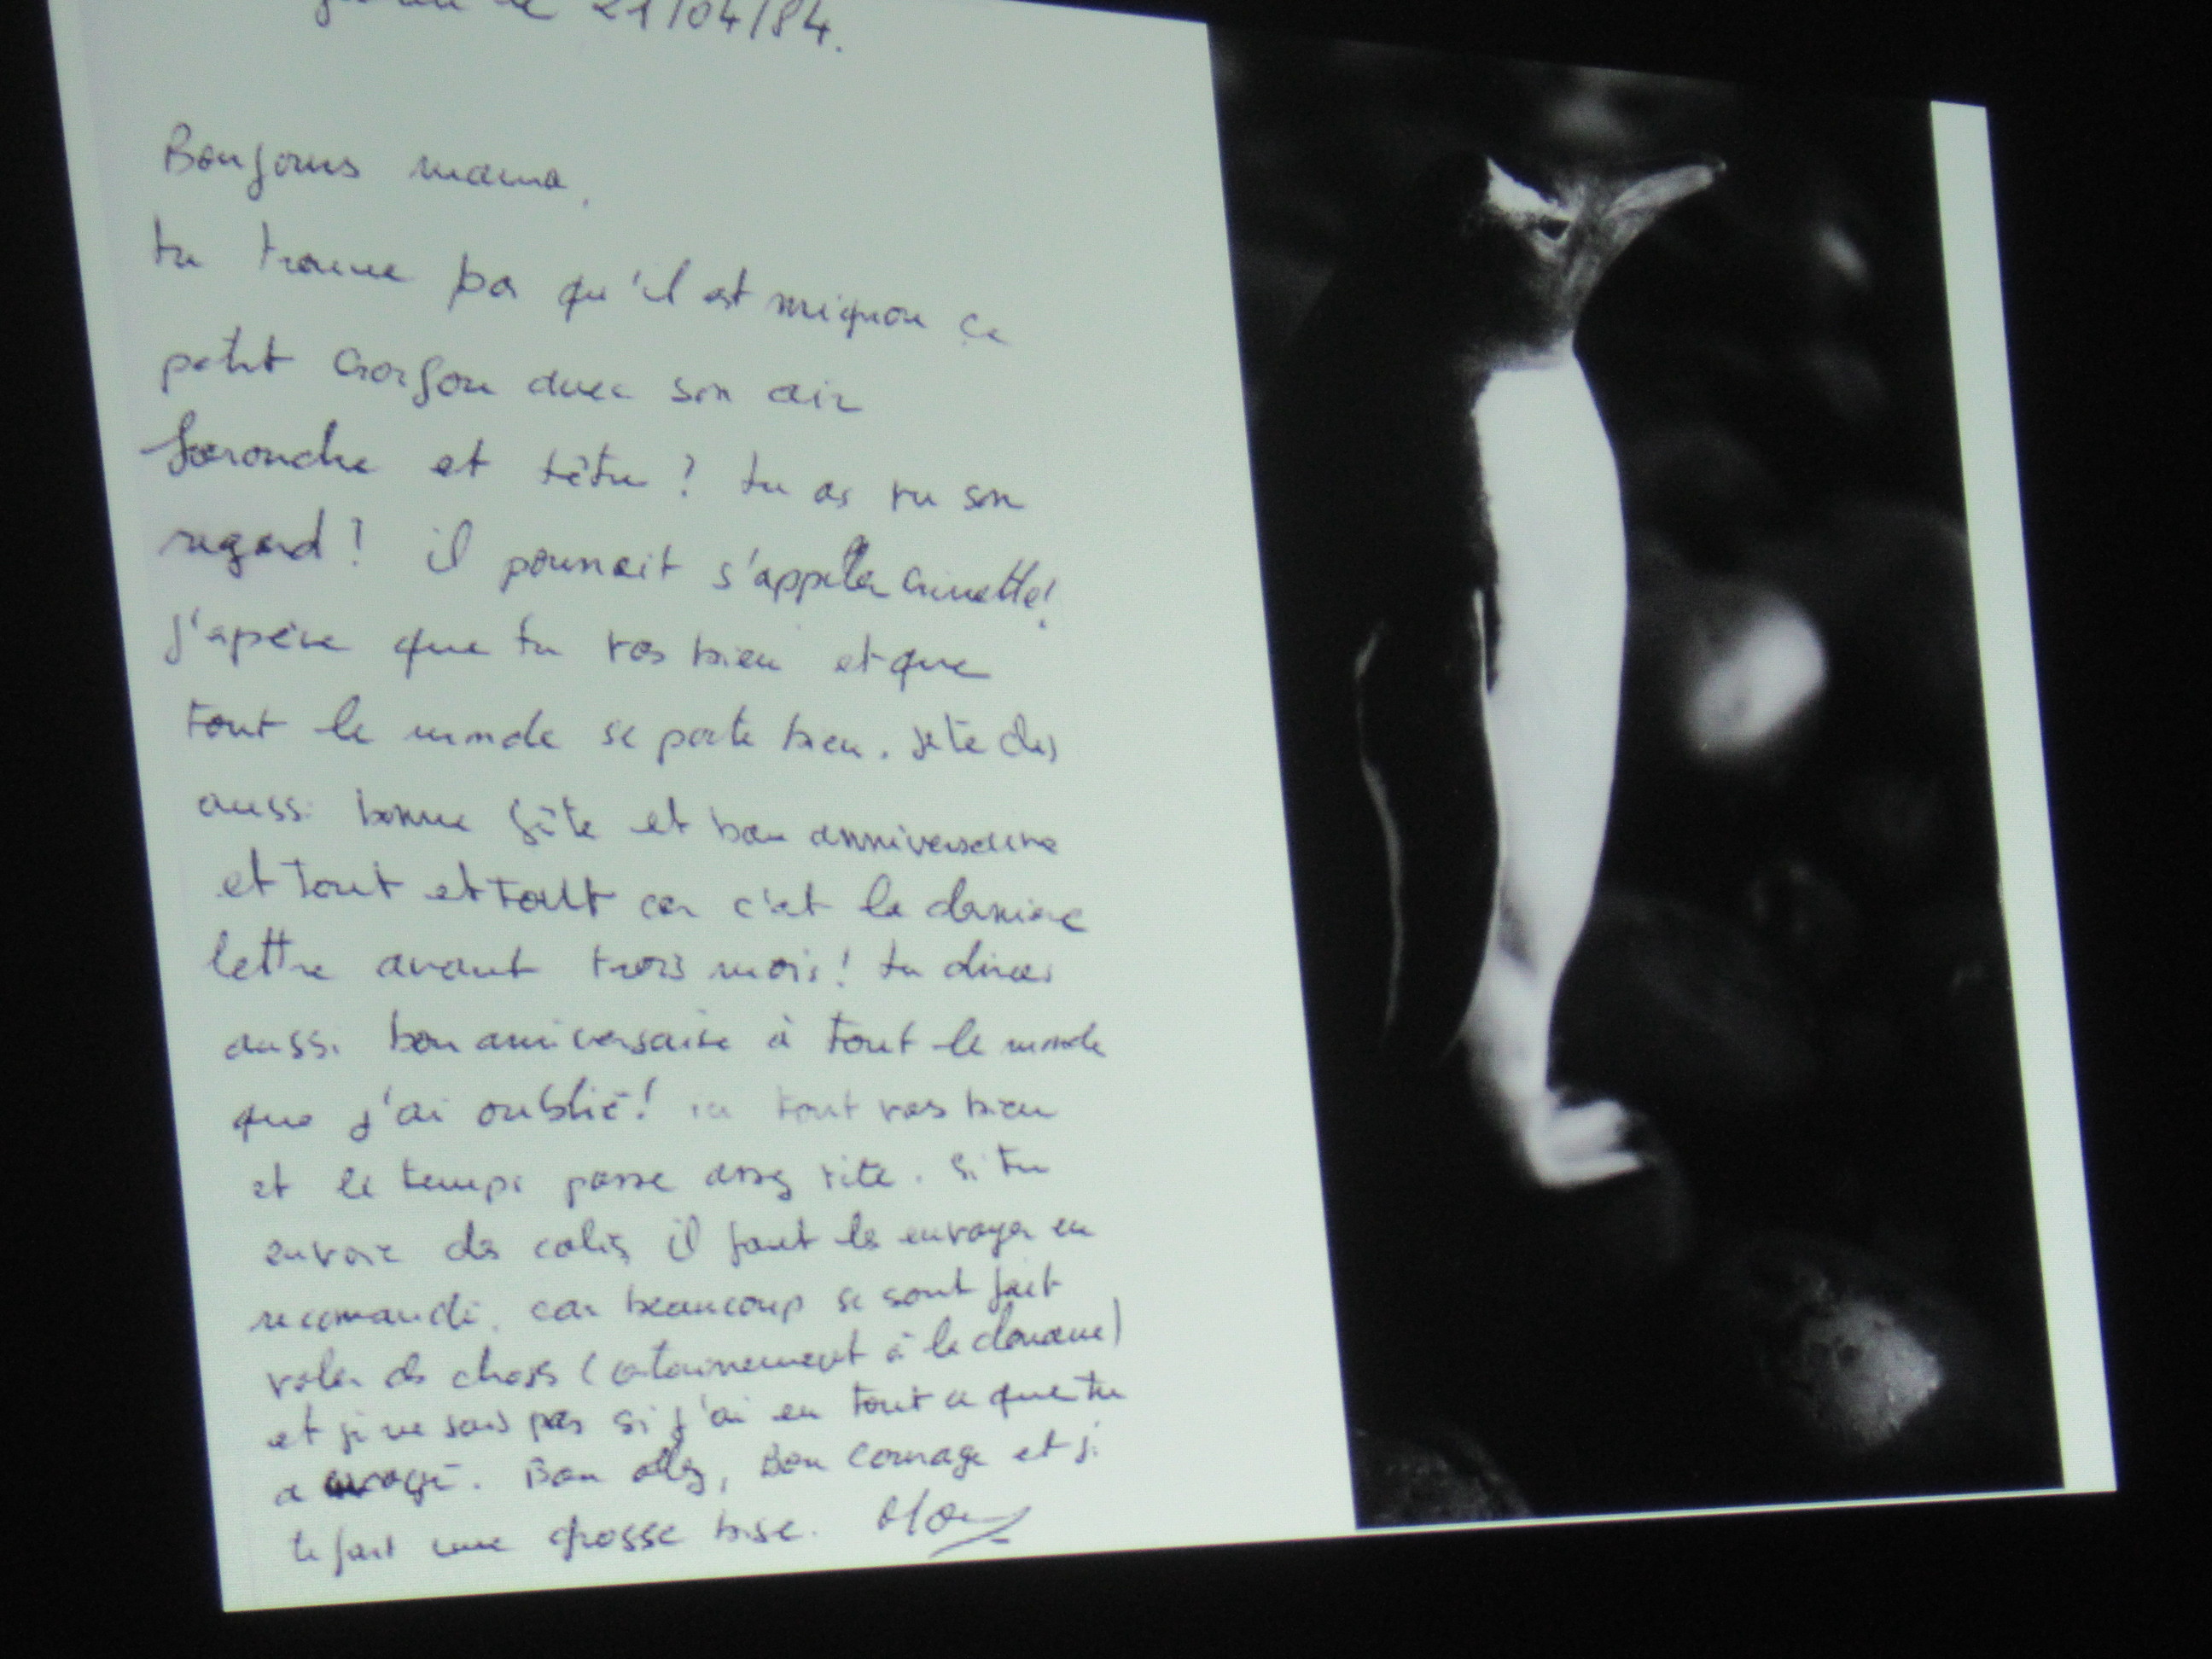 le 21/04/84.
Bonjours mama,
tu trouve pas qu'il est mignon ce
petit gorfou avec son air
farouche et têtu ? tu as vu son
regard ! il pourrait s'appeler
j'espère que tu vas bien et que
tout le monde se porte bien. je te dis
aussi bonne fête et bon anniversaire
et tout et tout car c'est la dernière
lettre avant trois mois ! tu diras
aussi bon anniversaire à tout le monde
que j'ai oublié ! ici tout vas bien
et le temps passe assez vite. si tu
envoie des colis il faut les envoyer en
recomandé, car beaucoup se sont fait
voler des choses (certainement à la douane)
et je ne sais pas si j'ai eu tout ce que tu
a envoyé. Bon allez, Bon courage et je
te fait une grosse bise.